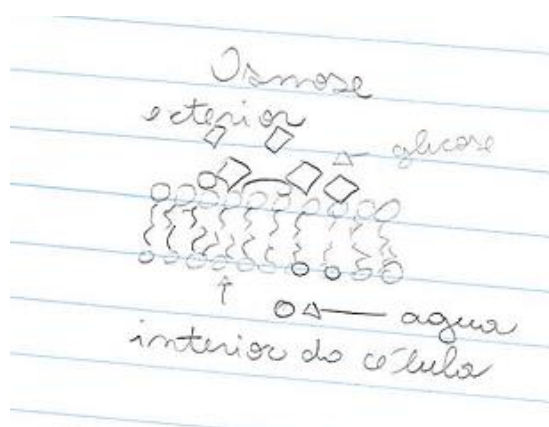 Osmose
exterior
glicose
agua
interior da célula